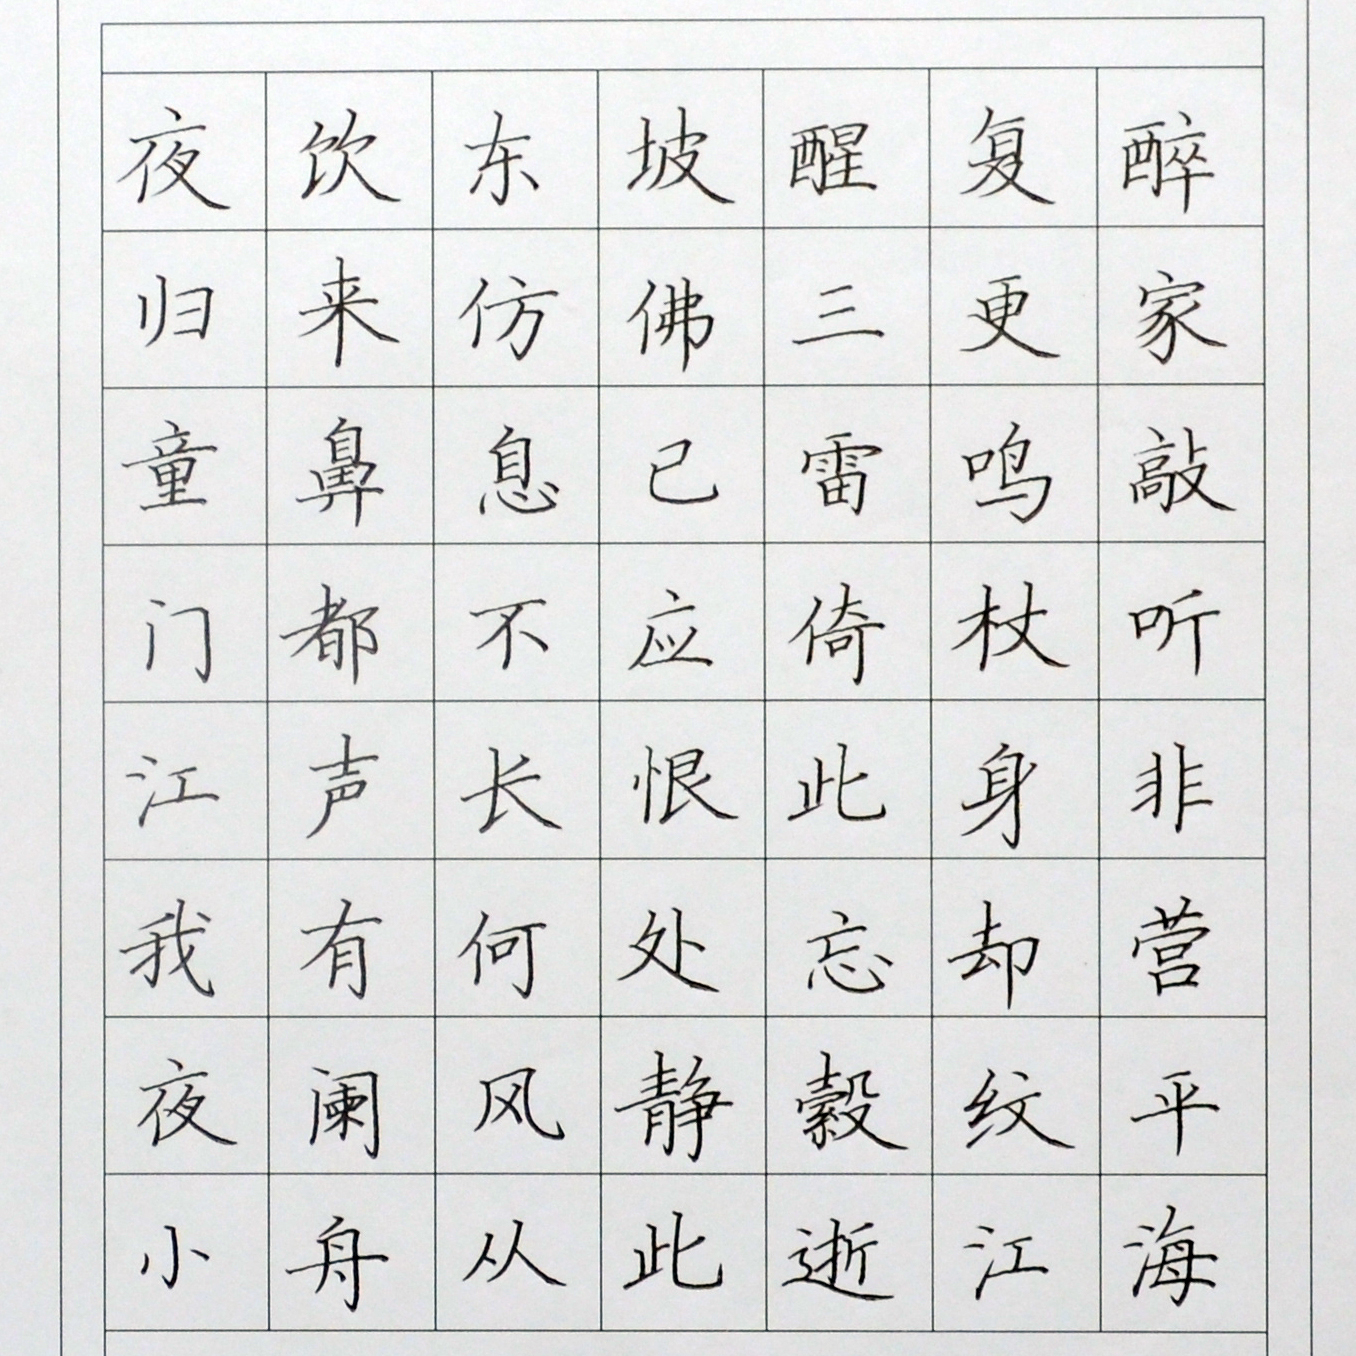 夜饮东坡醒复醉
归来仿佛三更家
童鼻息已雷鸣敲
门都不应倚杖听
江声长恨此身非
我有何处忘却营
夜阑风静縠纹平
小舟从此逝江海